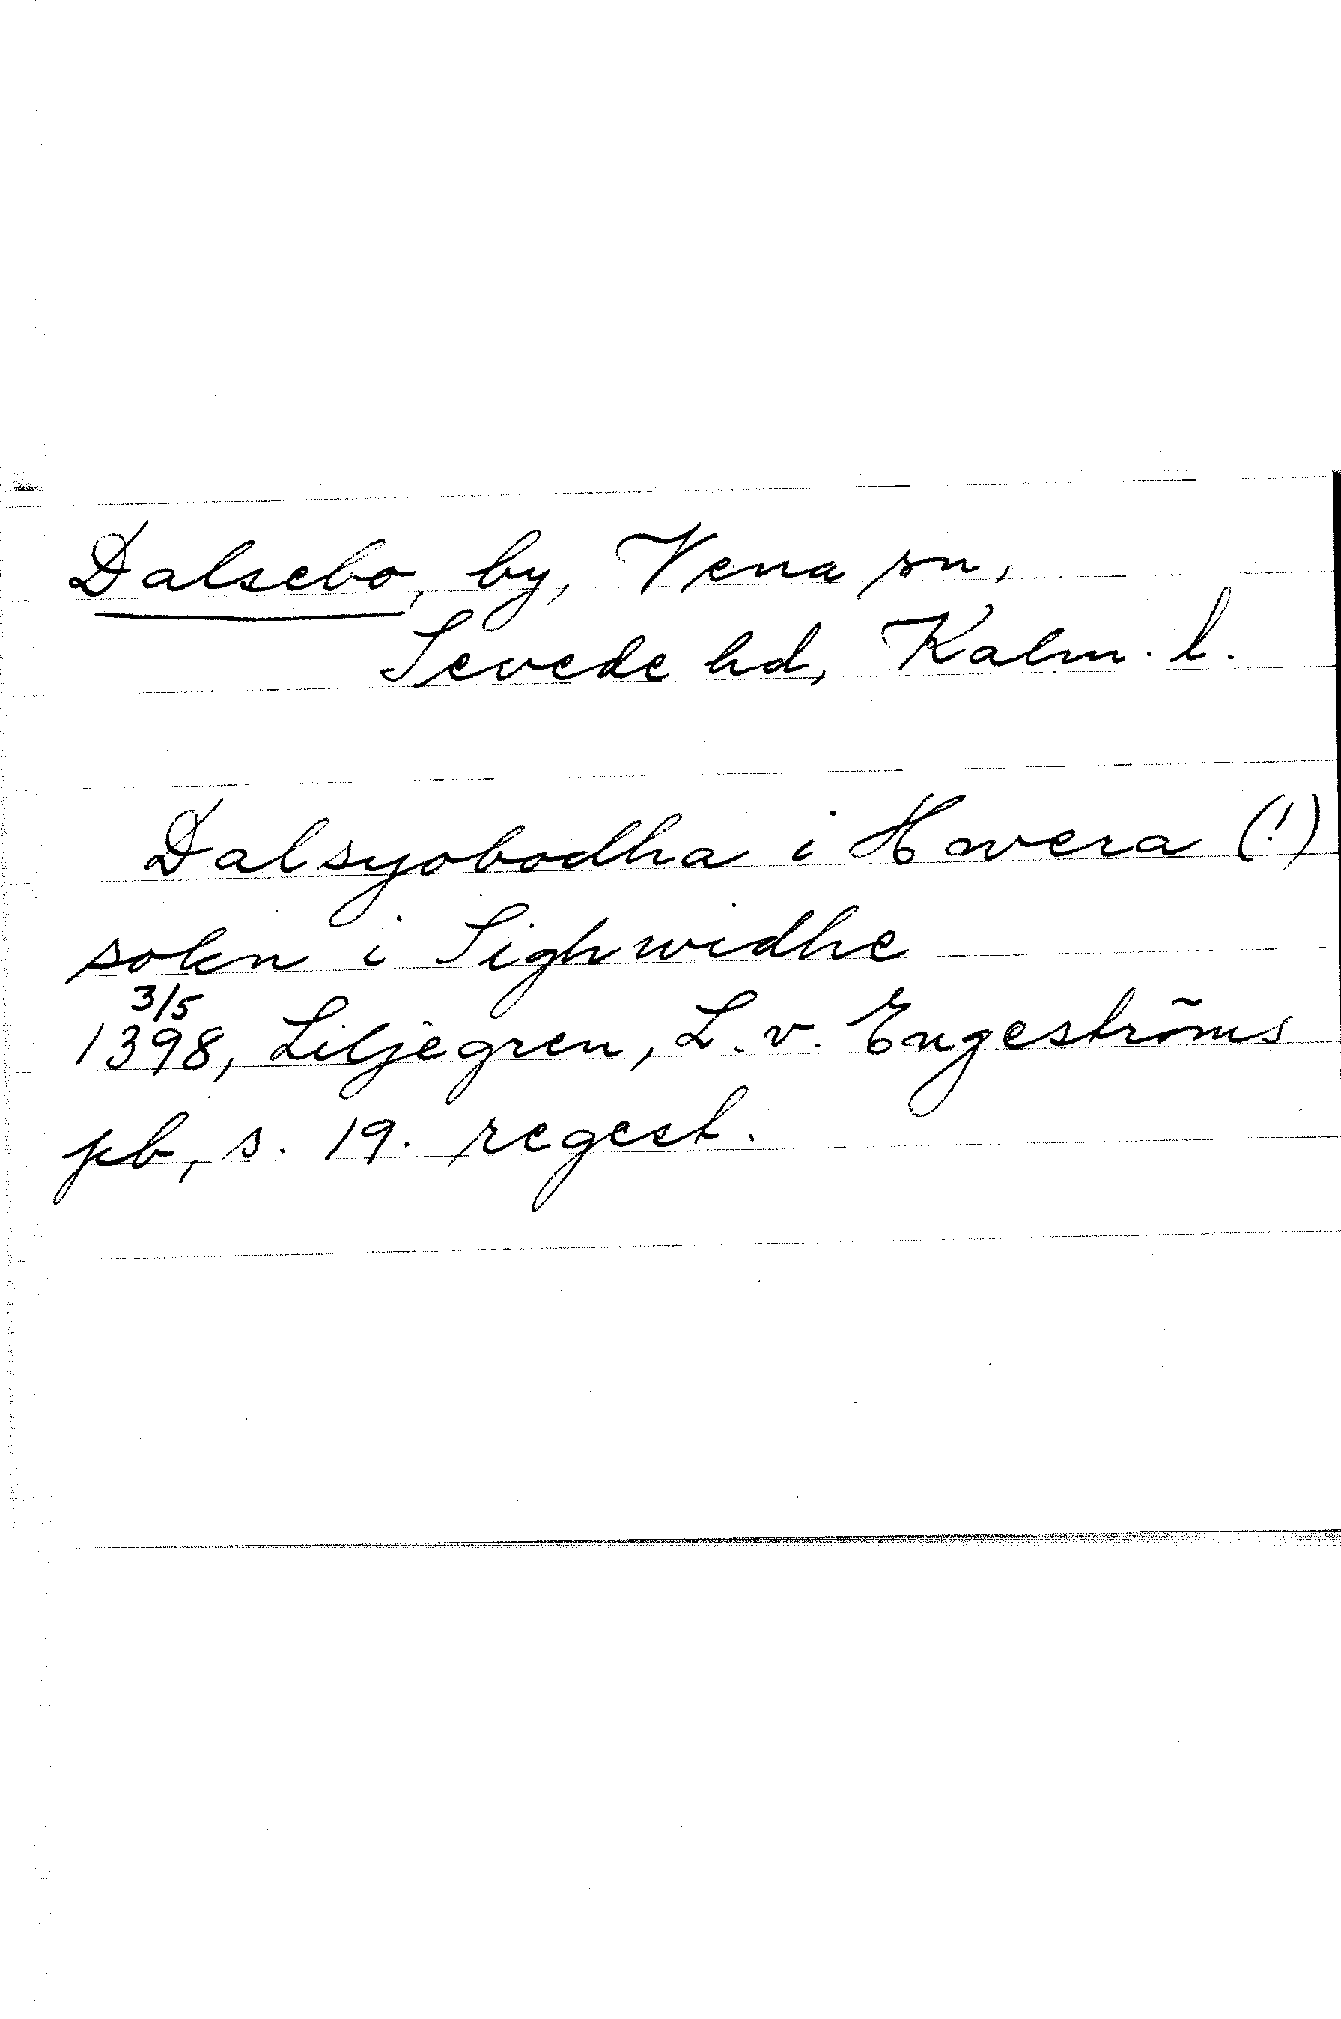 Dalsebo, by, Vena sn,
Sevede hd, Kalm. l.
Dalsyobodha i Hwera (!)
sokn i Sighwidhe
3/5
1398, Liljegren, L. v. Engeströms
pb, s. 19. regest.